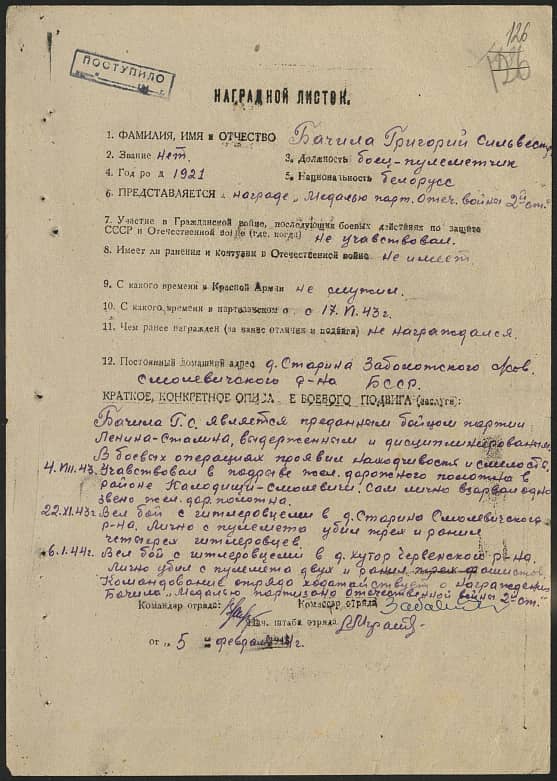 126
126
ПОСТУПИЛО
НАГРАДНОЙ ЛИСТОК.
1. ФАМИЛИЯ, ИМЯ и ОТЧЕСТВО Бачила Григорий Сильвест
2. Звание нет. 3. Должность боец-пулеметчик
4. Год ро д 1921 5. Национальность белорусс
6. ПРЕДСТАВЛЯЕТСЯ к награде „Медалью парт. Отеч. войны 2й ст."
7. Участие в Гражданской войне, последующих боевых действиях по защите
СССР и Отечественной войне (где, когда) не учавствовал.
8. Имеет ли ранения и контузии в Отечественной войне не имеет
9. С какого времени в Красной Армии не служил.
10. С какого времени в партизанском о с 17.VI.43 г.
11. Чем ранее награжден (за какие отличия и подвиги) не награждался.
12. Постоянный домашний адрес д. Старина Заболотского с/сов.
Смолевичского р-на БССР.
КРАТКОЕ, КОНКРЕТНОЕ ОПИСА Е БОЕВОГО ПОДВИГА (заслуги):
Бачила Г.С. является преданным бойцом партии
Ленина-Сталина, выдержанным и дисциплинированным
В боевых операциях проявил находчивость и смелость.
4.VIII.43. Учавствовал в подрыве жел. дорожного полотна в
районе Колодищи-Смолевичи. Сам лично взорвал одно
звено жел. дор. полотна.
22.XI.43г. Вел бой с гитлеровцеми в д. Старино Смолевичского
р-на. Лично с пулемета убил трех и ранил
четырех гитлеровцев.
6.1.44г. Вел бой с гитлеровцеми в д. хутор Червенской р-на.
Лично убил с пулемета двух и ранил трех фашистов.
Командование отряда ходатайствует о награждении
Бачило „Медалью партизана отечественной войны 2й ст."
Командир отряда: Комиссар отряда
Нач. штаба отряда
от „ 5 " февраля г.